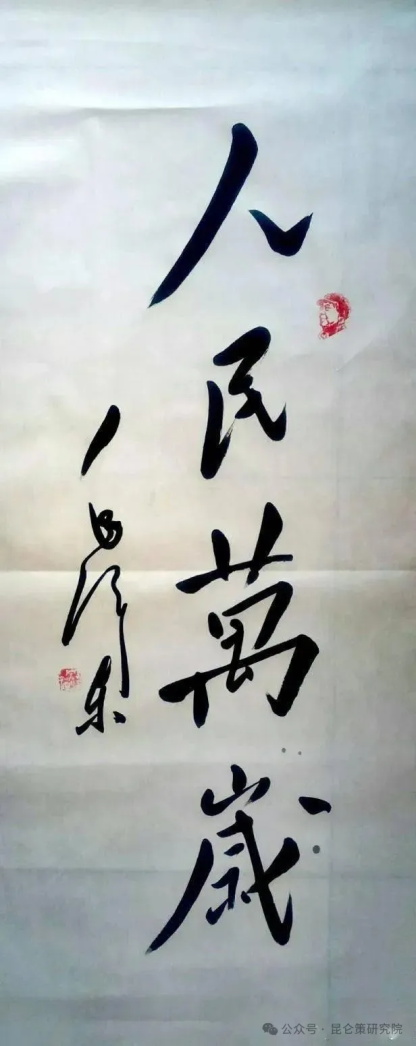 人民萬歲
毛泽东
公众号·昆仑策研究院